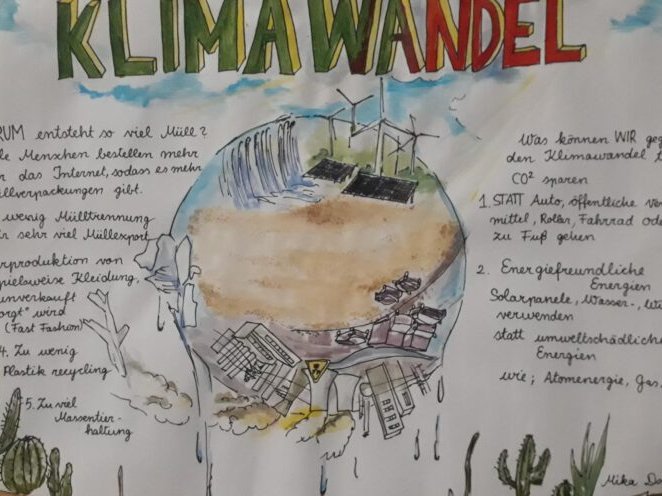 KLIMAWANDEL
RUM entsteht so viel Müll?
le Menschen bestellen mehr
r das Internet, sodass es mehr
llverpackungen gibt.
wenig Mülltrennung
ir sehr viel Müllexport
rproduktion von
spielsweise Kleidung,
unverkauft
orgt" wird
(Fast Fashion)
4. Zu wenig
Plastik recycling
5. Zu viel
Massentier-
haltung
Was können WIR geg
den Klimawandel t
CO² sparen
1. STATT Auto, öffentliche Ver
mittel, Roller, Fahrrad od
zu Fuß gehen
2. Energiefreundliche
Energien
Solarpanele, Wasser-, Wi
verwenden
statt umweltschädliche
Energien
wie; Atomenergie, Gas,
Mika Da